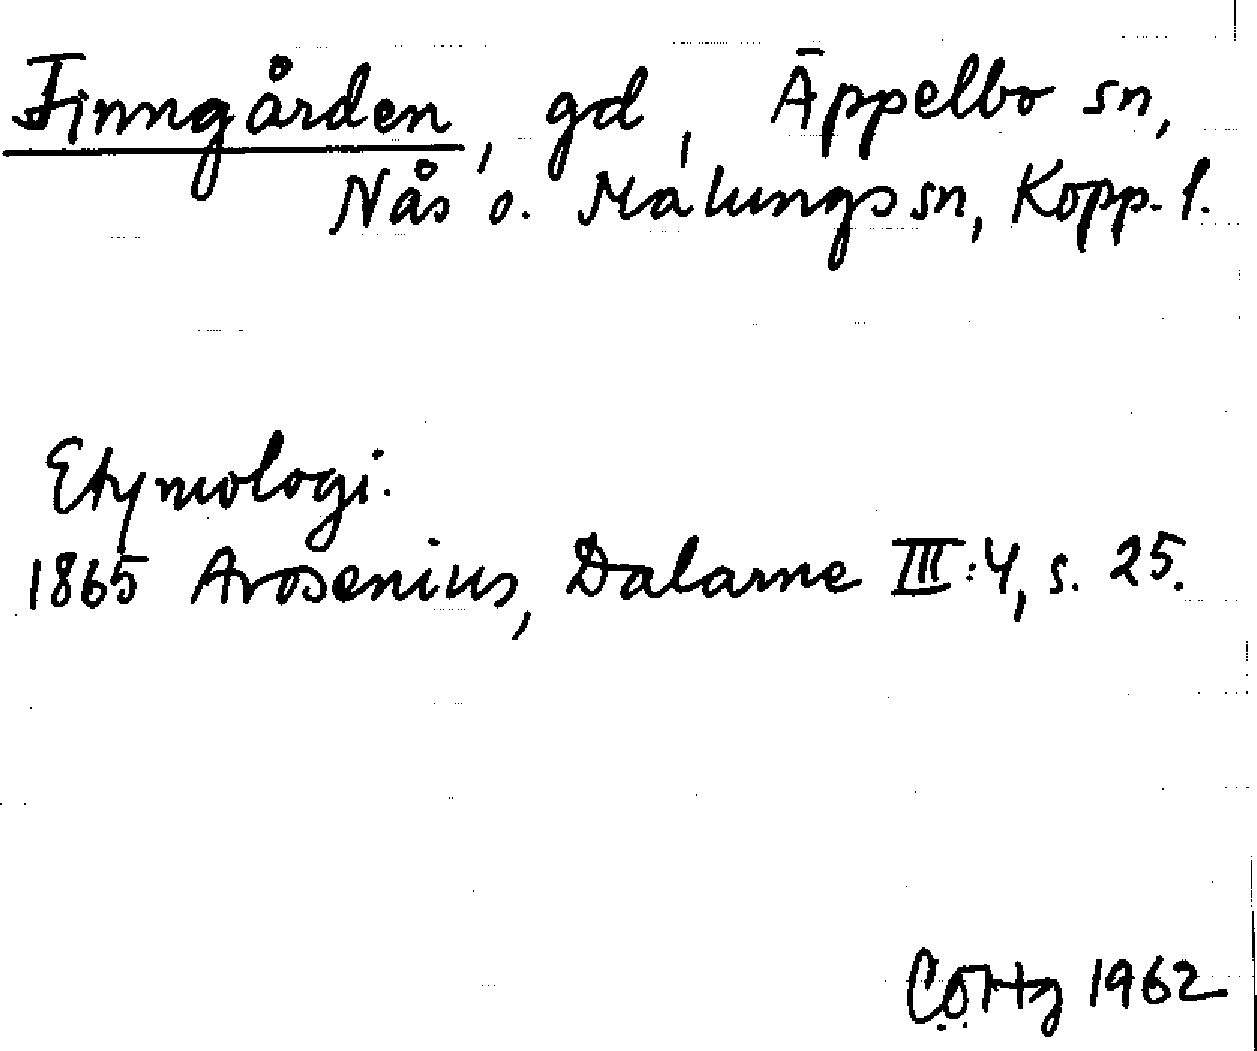 Finngården, gd, Äppelbo sn,
Nås o. Malungs sn, Kopp. l.
Etymologi.
1865 Arosenius, Dalarne III:4, s. 25.
1962